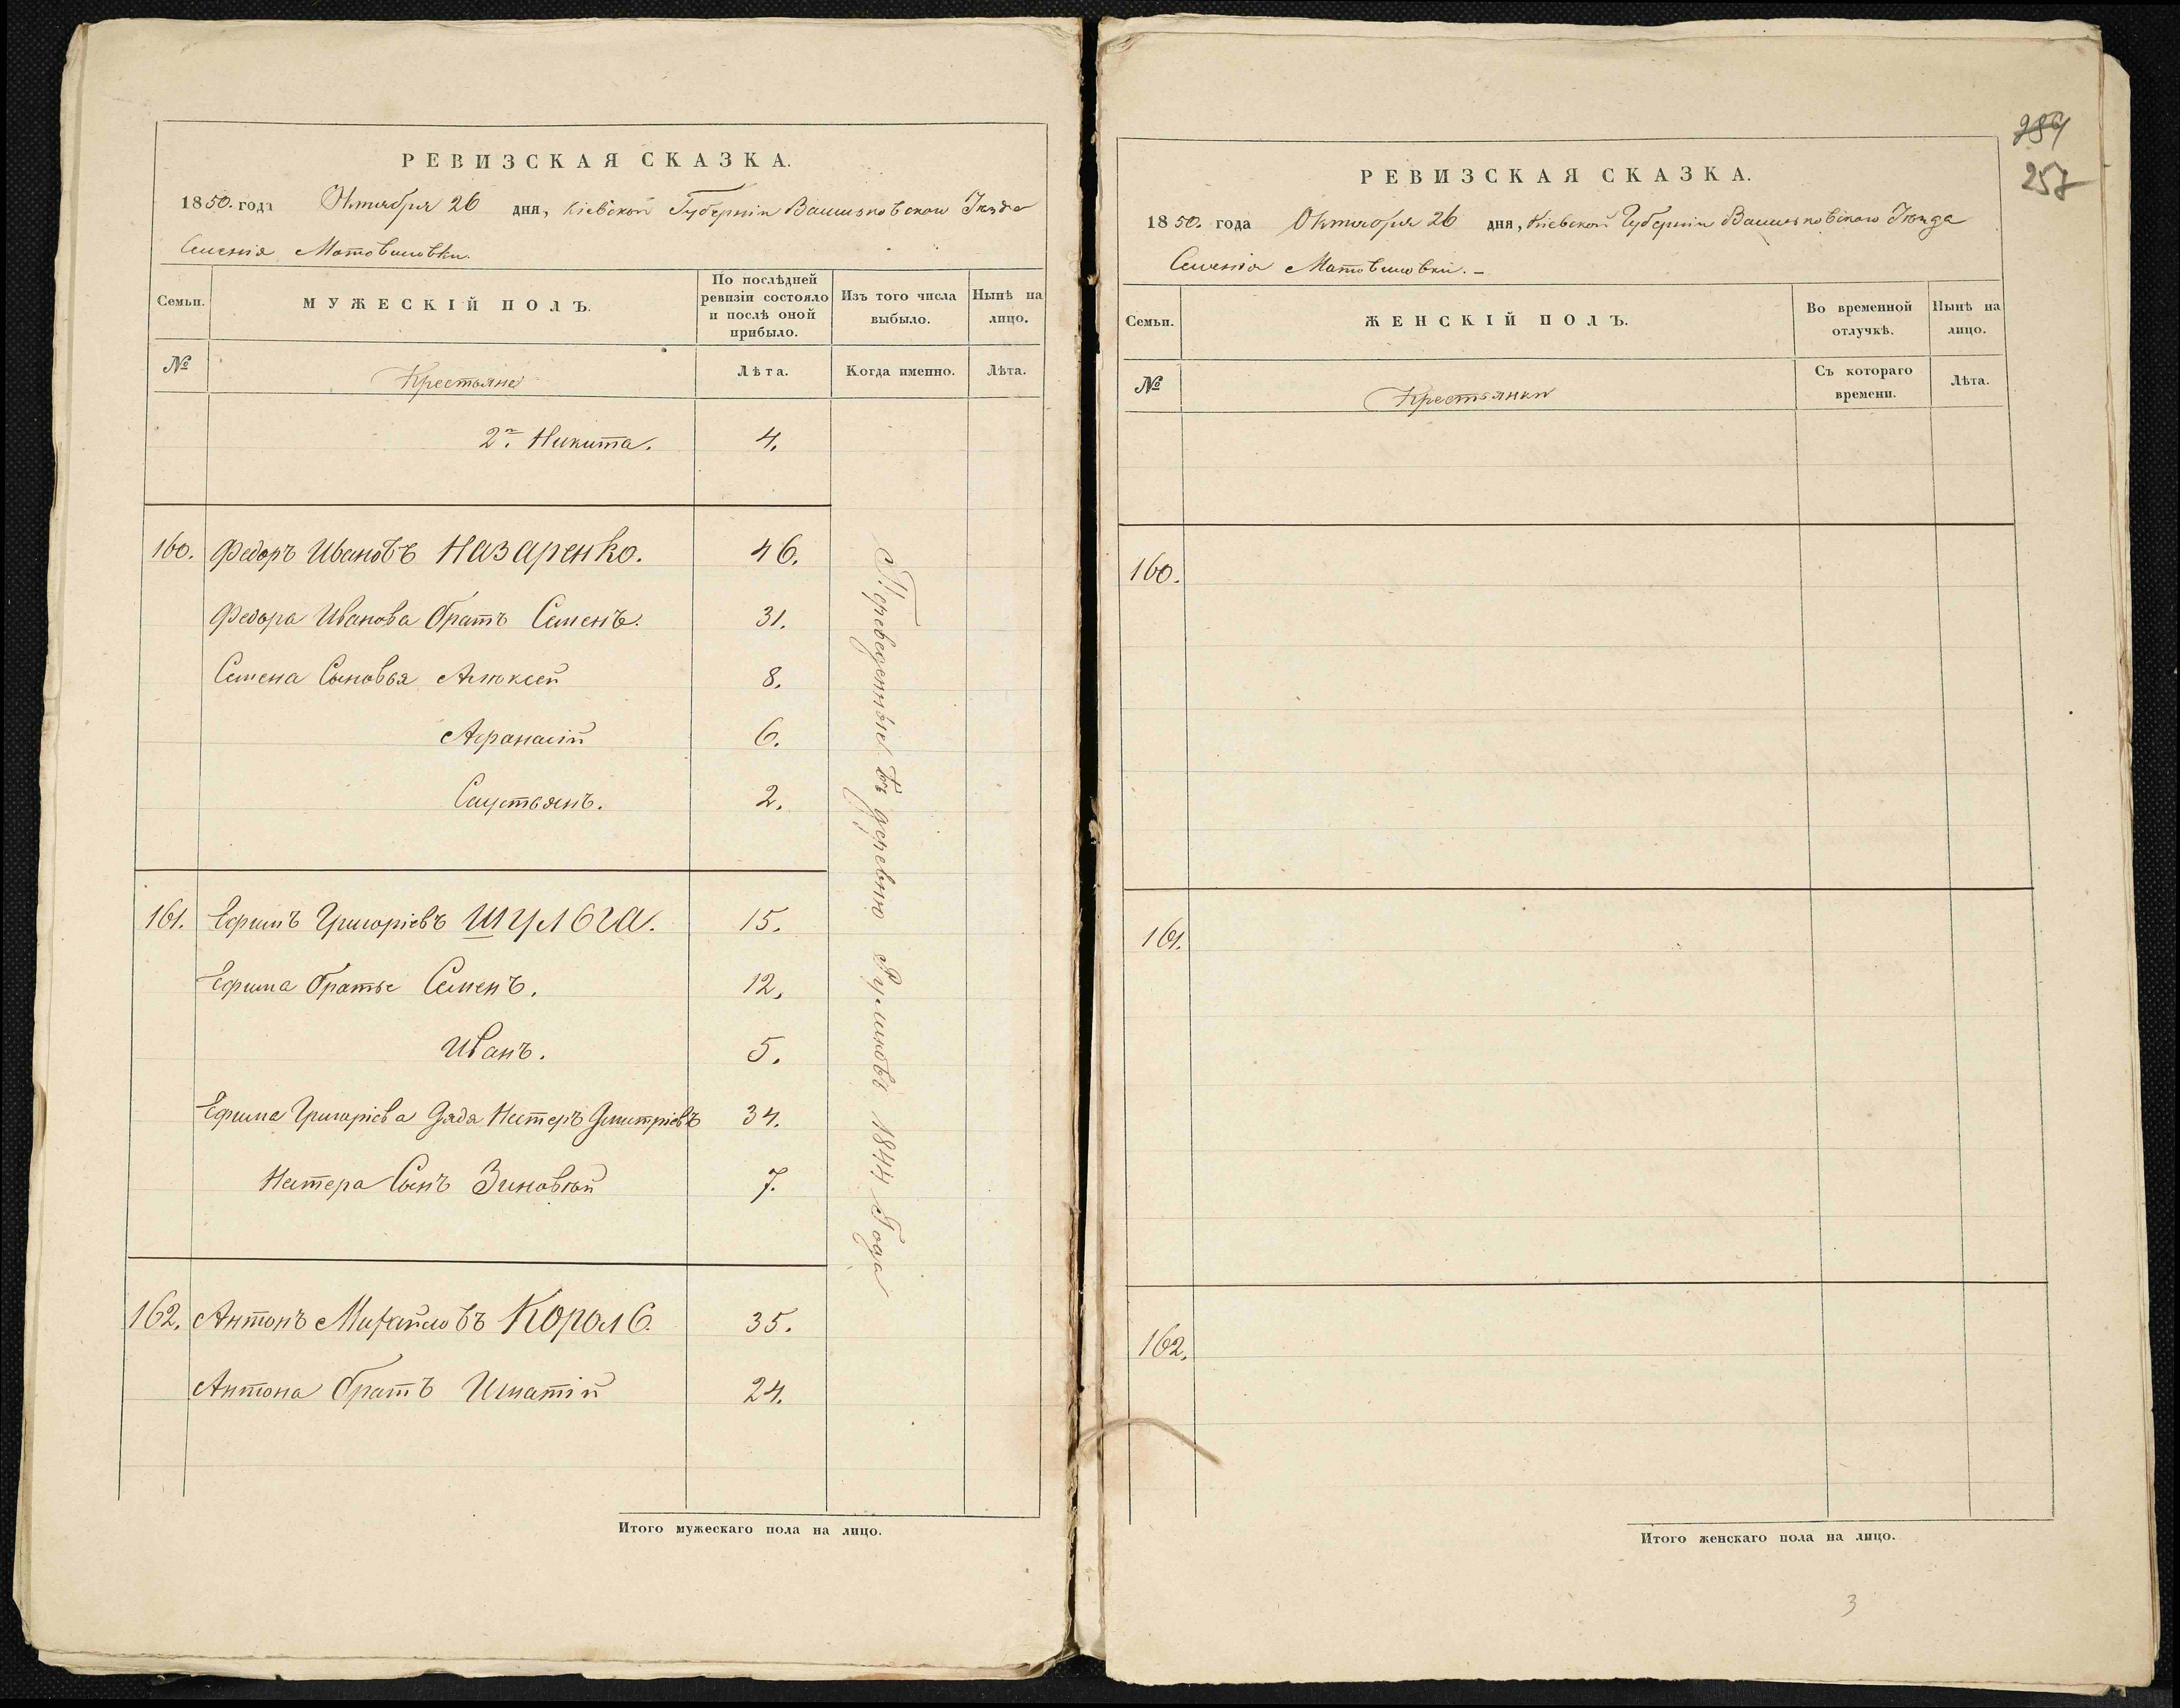 РЕВИЗСКАЯ СКАЗКА.
1850. года Октября 26 дня, Кіевской Губерніи Васильковскаго Уѣзда
Селенія Мотовиловки.
Семьи.
МУЖЕСКІЙ ПОЛЪ.
По послѣдней ревизіи состояло и послѣ оной прибыло.
Изъ того числа выбыло.
Нынѣ на лицо.
№
Крестьяне
Лѣта.
Когда именно.
Лѣта.
2й. Никита. 4.
160. Федоръ Ивановъ Назаренко. 46.
Федора Иванова братъ Семенъ. 31.
Семена Сыновья Алексей 8.
Афанасій 6.
Саустьянъ. 2.
161. Ефимъ Григоріевъ Шульга. 15.
Ефима братье Семенъ. 12.
Иванъ. 5.
Ефима Григоріева Дядя Нестеръ Дмитріевъ 34.
Нестера Сынъ Зиновій 7.
162. Антонъ Михайловъ Король. 35.
Антона братъ Игнатій 24.
Переведенные въ деревню 1844 Года
Итого мужескаго пола на лицо.
284
257
РЕВИЗСКАЯ СКАЗКА.
1850. года Октября 26 дня, Кіевской Губерніи Васильковскаго Уѣзда
Селенія Мотовиловки. –
Семьи.
ЖЕНСКІЙ ПОЛЪ.
Во временной отлучкѣ.
Нынѣ на лицо.
№
Крестьянки
Съ котораго времени.
Лѣта.
160.
161.
162.
Итого женскаго пола на лицо.
3